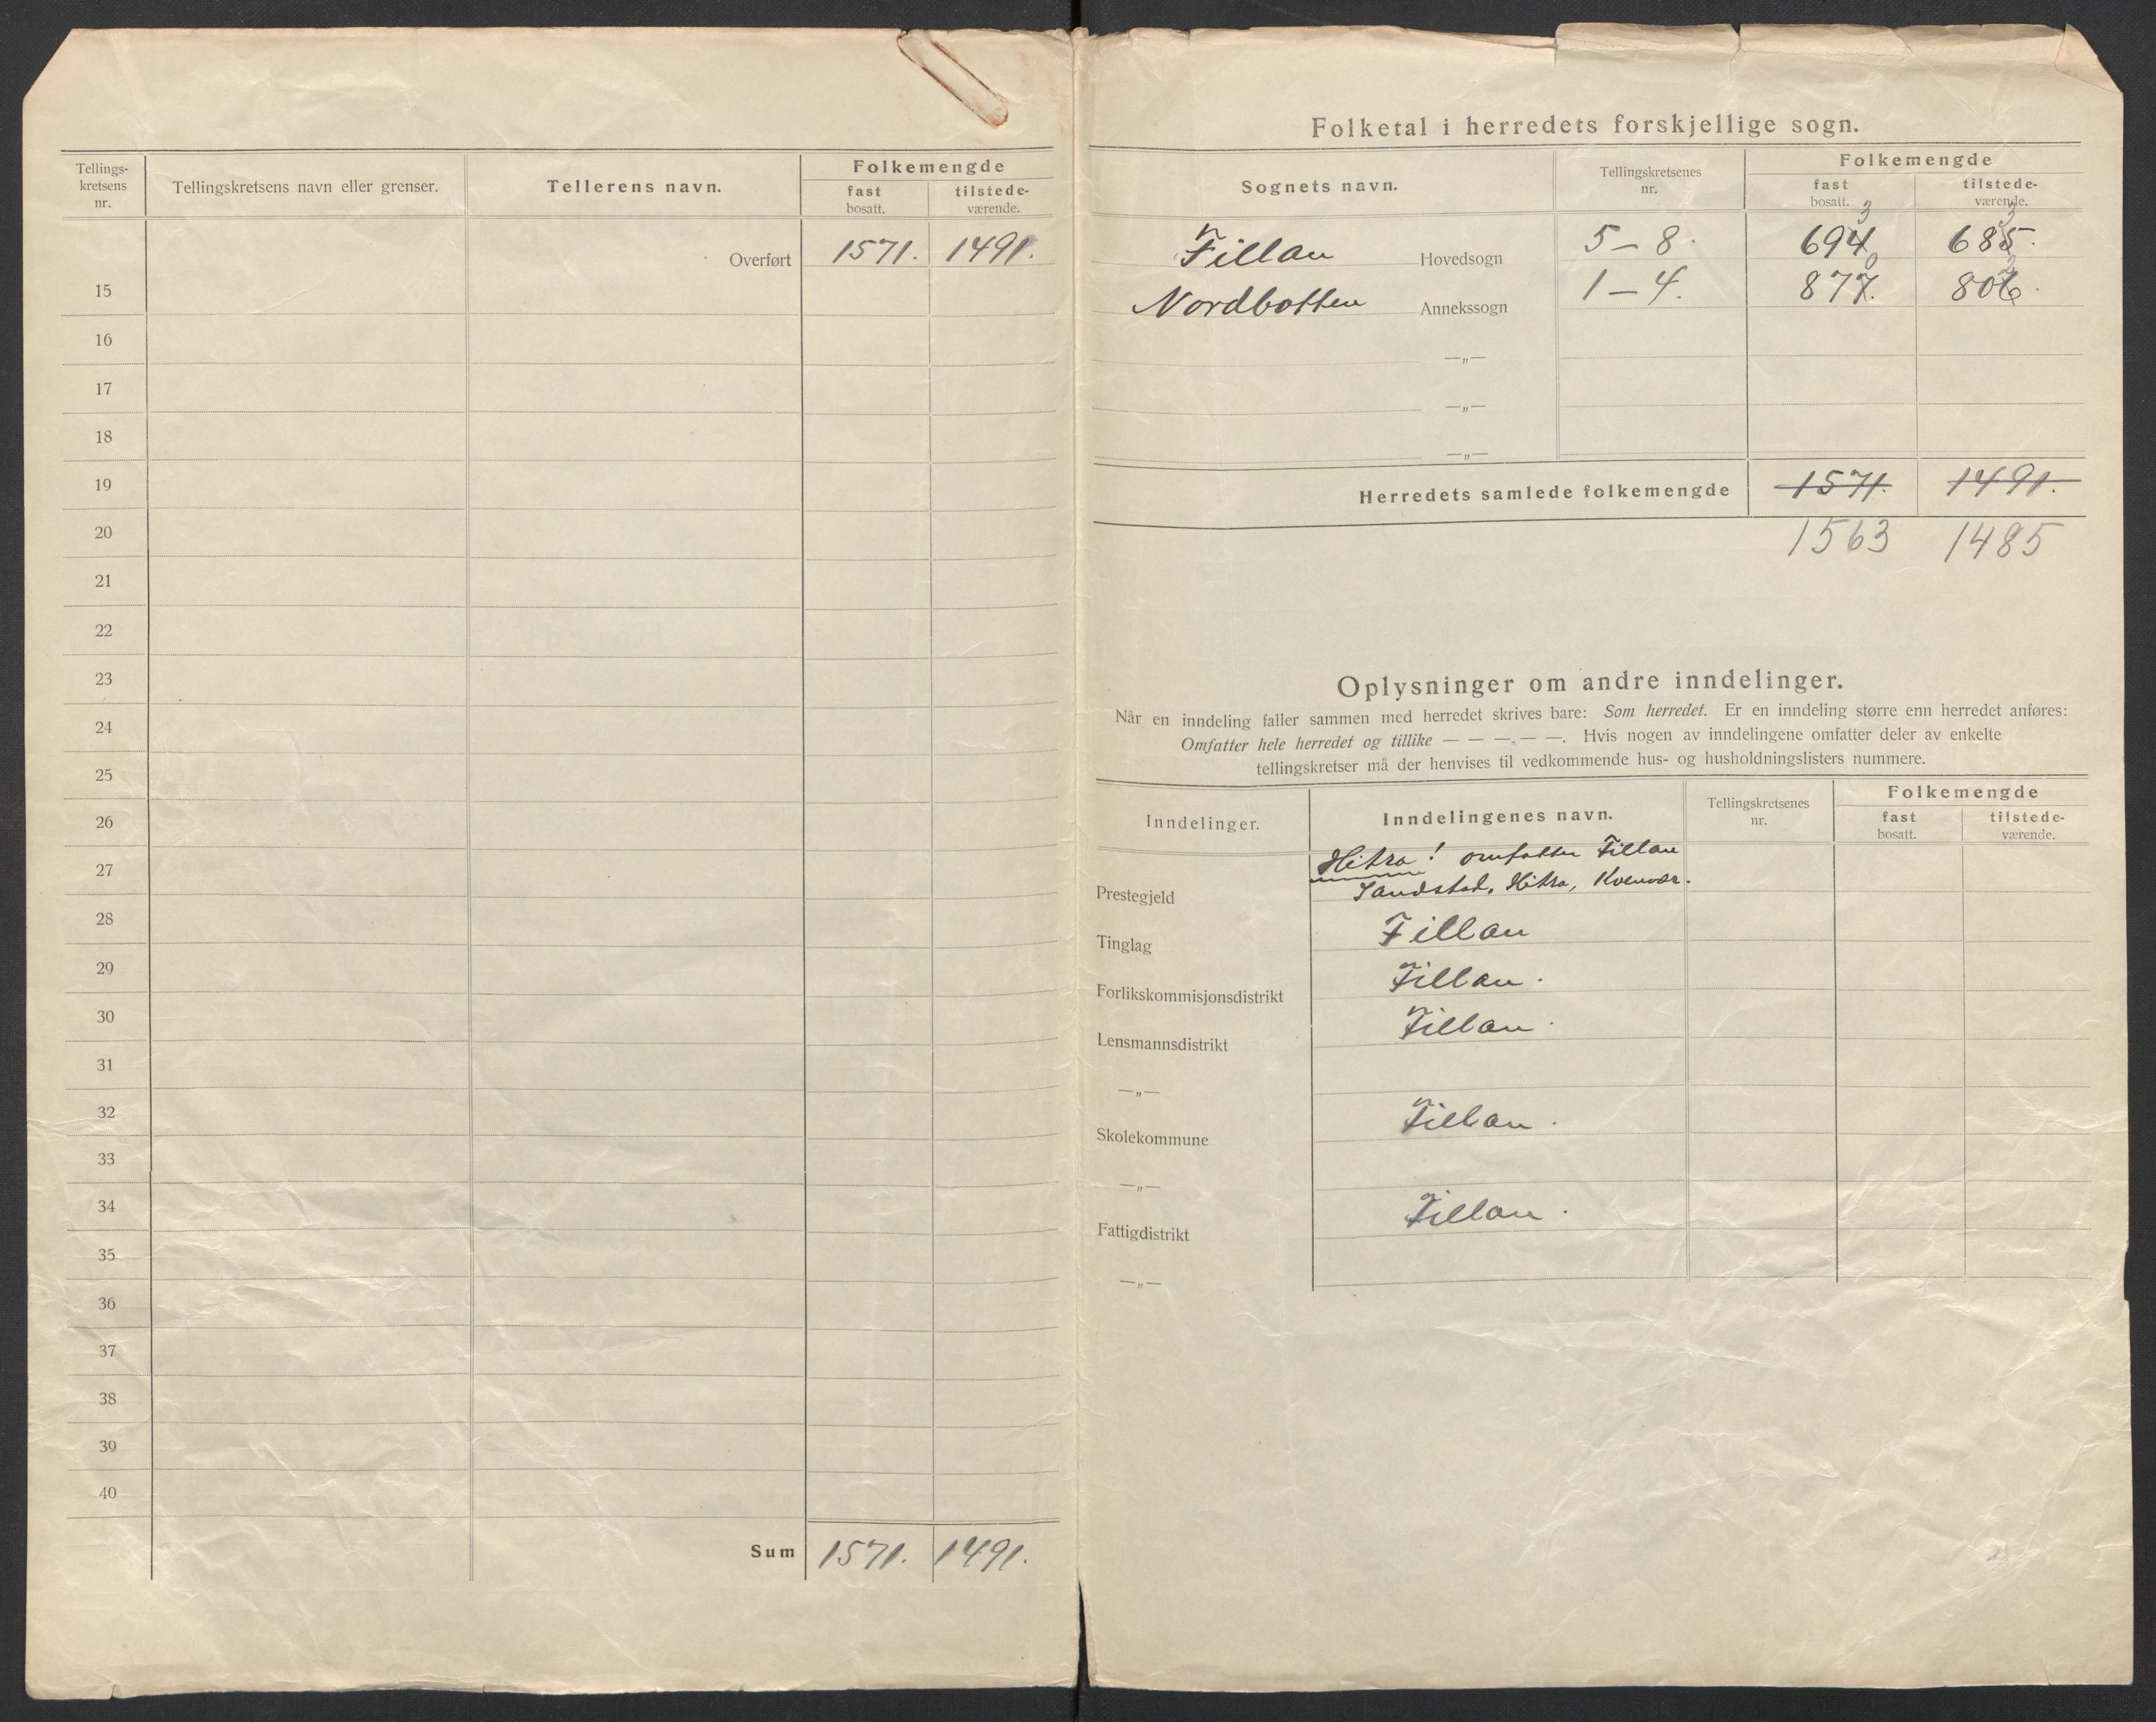 Tellings-
kretsens
nr.
Tellingskretsens navn eller grenser.
Tellerens navn.
Folkemengde
fast
bosatt.
tilstede-
værende.
Overført 1571. 1491.
15
16
17
18
19
20
21
22
23
24
25
26
27
28
29
30
31
32
33
34
35
36
37
38
39
40
Sum 1571. 1491.
Folketal i herredets forskjellige sogn.
Sognets navn.
Tellingskretsenes
nr.
Folkemengde
fast
bosatt.
tilstede-
værende.
3 3
Fillan Hovedsogn 5-8. 694 685.
0 2
Nordbotten Annekssogn 1-4. 877. 806.
—„—
—„—
—„—
Herredets samlede folkemengde 1571. 1491.
1563 1485
Oplysninger om andre inndelinger.
Når en inndeling faller sammen med herredet skrives bare: Som herredet. Er en inndeling større enn herredet anføres:
Omfatter hele herredet og tillike — — — — —. Hvis nogen av inndelingene omfatter deler av enkelte
tellingskretser må der henvises til vedkommende hus- og husholdningslisters nummere.
Inndelinger.
Inndelingenes navn.
Tellingskretsenes
nr.
Folkemengde
fast
bosatt.
tilstede-
værende.
Hitra! omfatter Fillan
Prestegjeld Sandstad, Hitra, Kvenvær.
Tinglag Fillan
Forlikskommisjonsdistrikt Fillan.
Lensmannsdistrikt Fillan.
—„—
Skolekommune Fillan.
—„—
Fattigdistrikt Fillan.
—„—